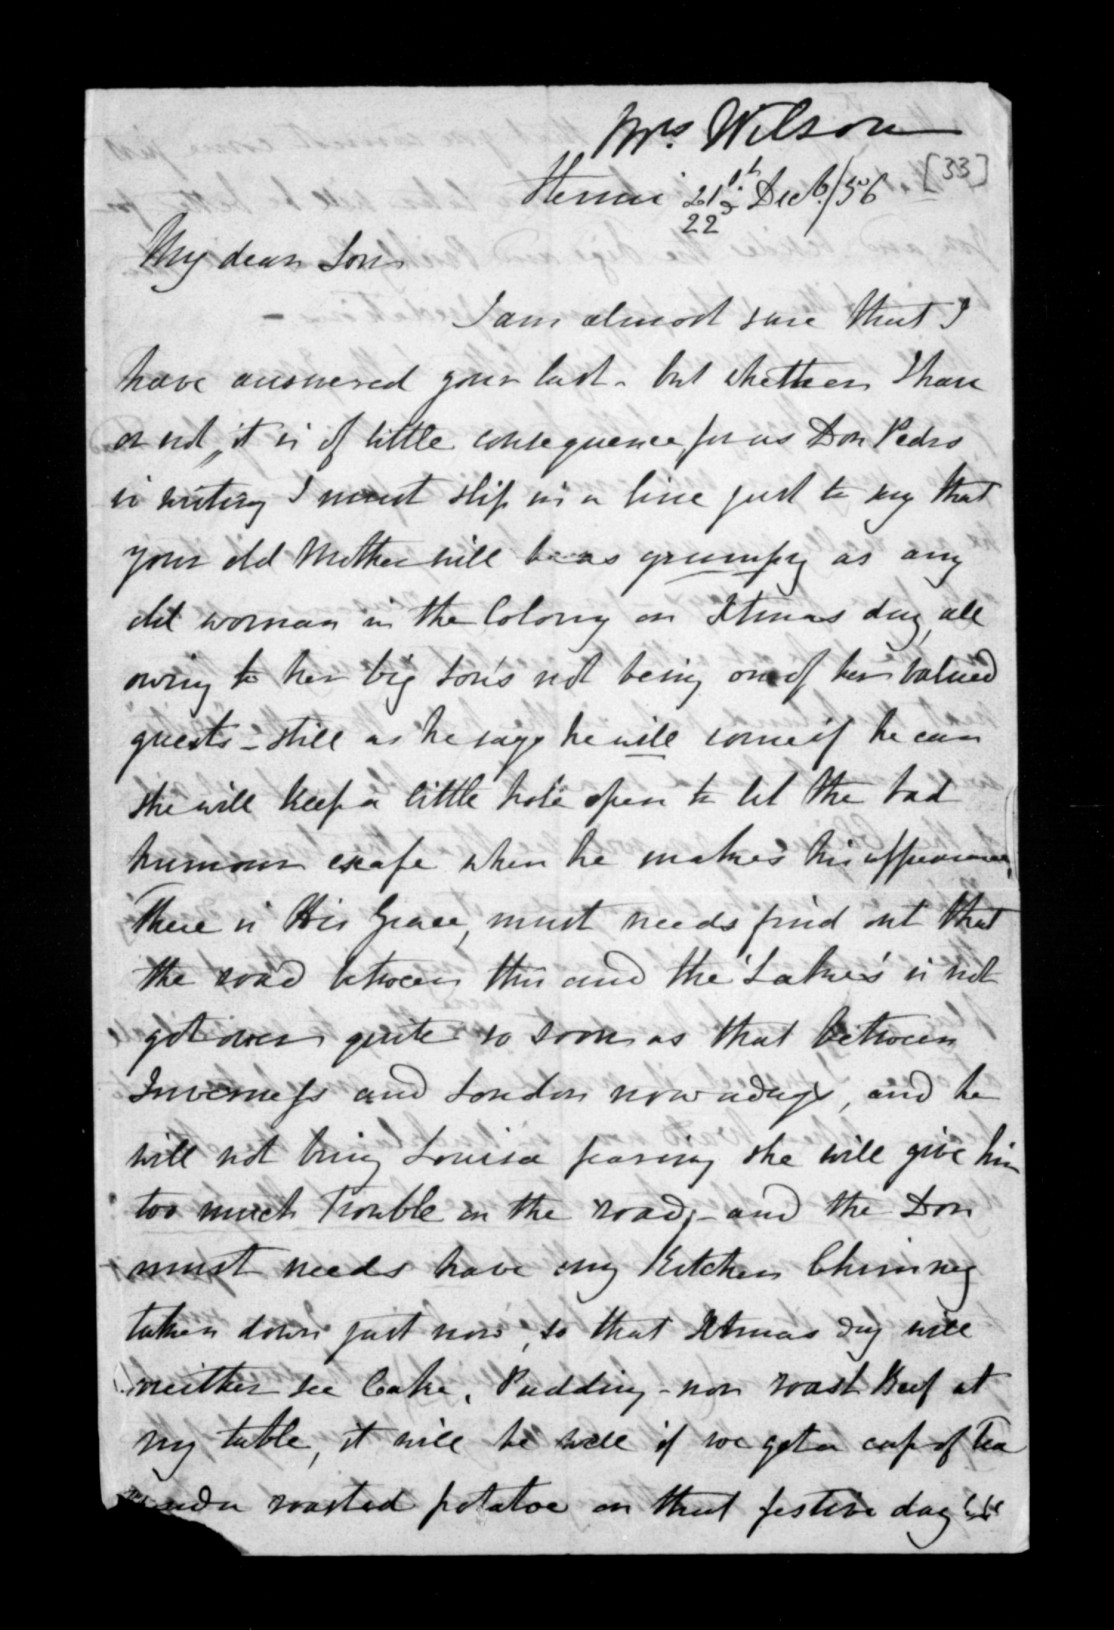 Mrs. Wilson
[33]
21st Decb/56
22d
My dear Son
I am almost sure that I
have answered your last - but whether I have
or not, it is of little consequence, for as Don Pedro
is writing I must slip in a line just to say that
your old Mother will be as grumpy as any
old woman in the Colony on Xtmas day, all
owing to her big son's not being one of her valued
guests - still as he says he will come if he can
she will keep a little hole open to let the bad
humour escape when he makes his appearance,
There is His Grace, must needs find out that
the road between this and the 'Lakes' is not
got over quite so soon as that between
Inverness and London nowadays, and he
will not bring Louisa fearing she will give him
too much trouble on the road, - and the Don
must needs have my Kitchen Chimney
taken down just now, so that Xtmas day will
neither see Cake, Pudding - nor roast Beef at
my table, it will be well if we get a cup of Tea
and a roasted potatoe on that festive day!!!